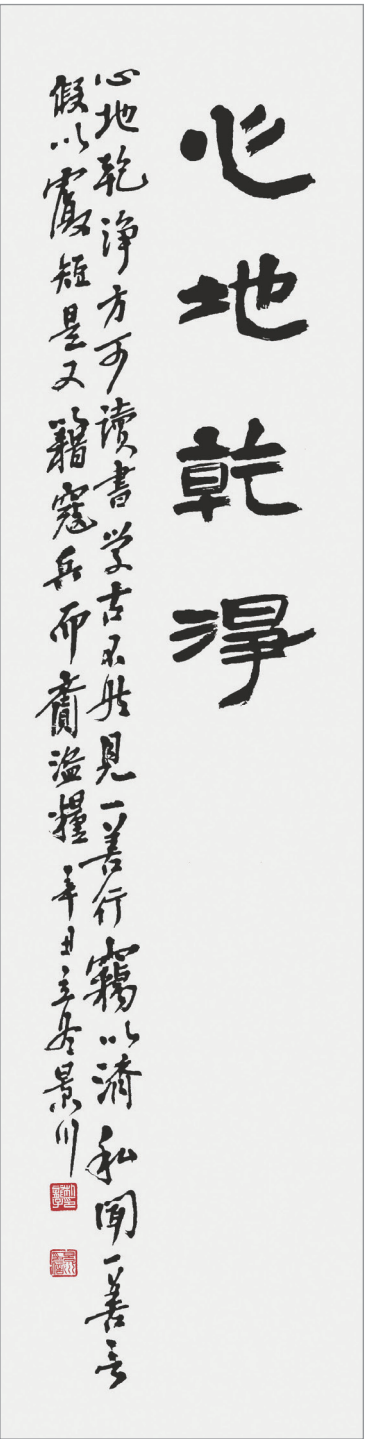 心地乾淨
心地乾淨方可讀書学古不然見一善行竊以濟私聞一善言
假以覆短是又藉寇兵而齎盜糧辛丑立冬景川